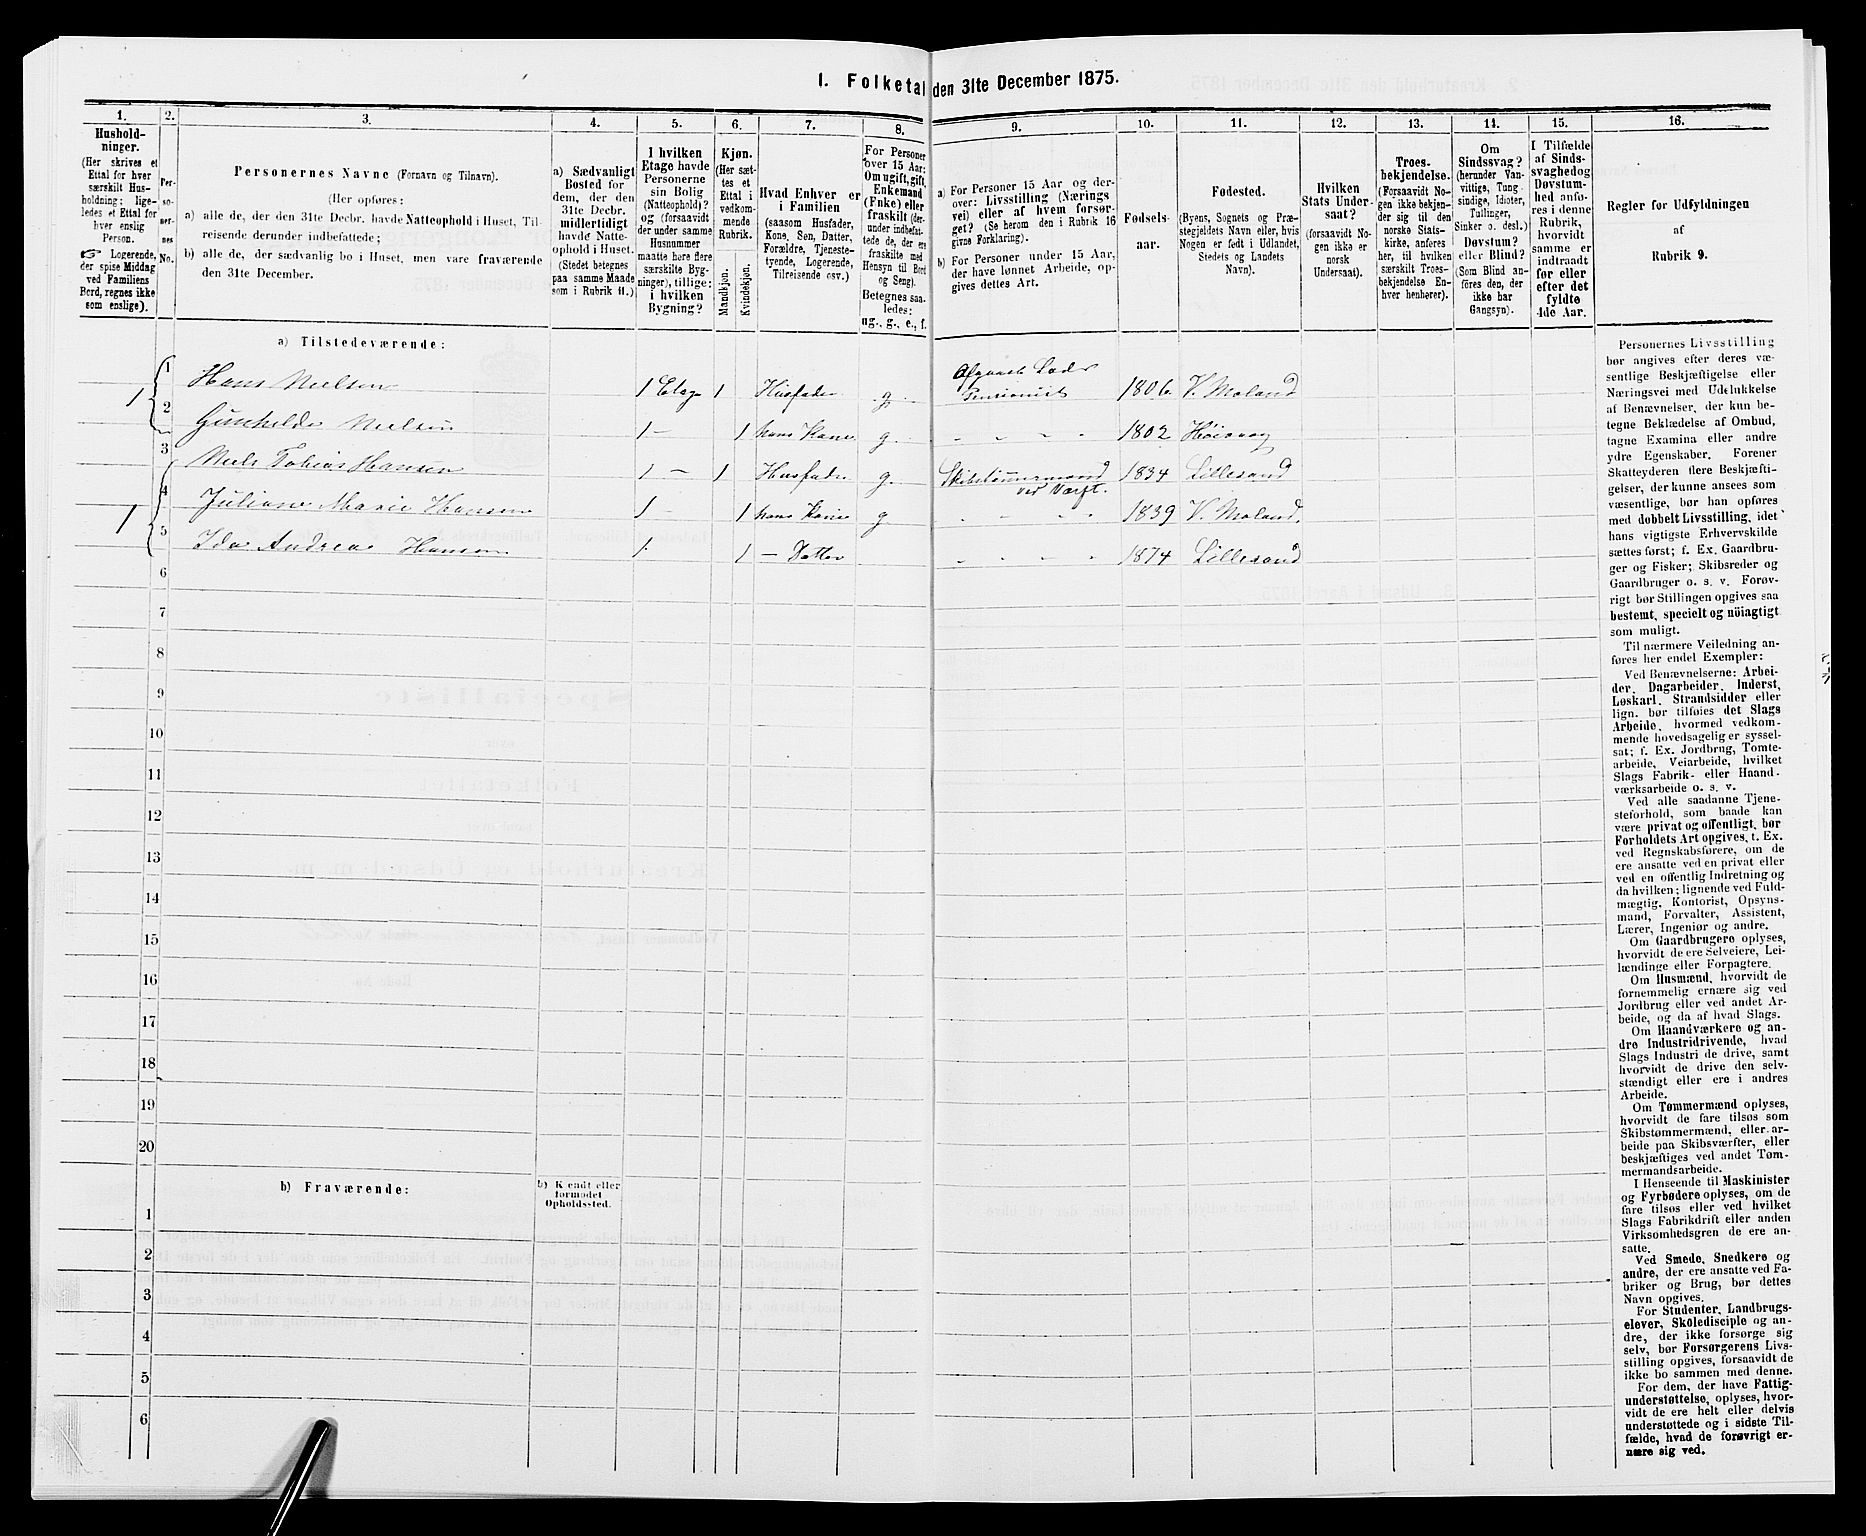 1. Folketal den 31te December 1875.
1. 2. 3. 4. 5. 6. 7. 8. 9. 10. 11. 12. 13. 14. 15. 16.
Hushold-
ninger.
(Her skrives et
Ettal for hver
særskilt Hus-
holdning; lige-
ledes et Ettal for
hver enslig
Person.
☞ Logerende,
der spise Middag
ved Familiens
Bord, regnes ikke
som enslige).
Per-
so-
ner-
nes
No.
Personernes Navne (Fornavn og Tilnavn).
(Her opføres:
a) alle de, der den 31te Decbr. havde Natteophold i Huset, Til-
reisende derunder indbefattede;
b) alle de, der sædvanlig bo i Huset, men vare fraværende
den 31te December.
a) Sædvanligt
Bosted for
dem, der den
31te Decbr.
midlertidigt
havde Natte-
ophold i Huset.
(Stedet betegnes
paa samme Maade
som i Rubrik 11.)
I hvilken
Etage havde
Personerne
sin Bolig
(Natteophold)?
og (forsaavidt
der under samme
Husnummer
maatte høre flere
særskilte Byg-
ninger), tillige:
i hvilken
Bygning?
Kjøn.
(Her sæt-
tes et
Ettal i
vedkom-
mende
Rubrik.
Mandkjøn.
Kvindekjøn.
Hvad Enhver er
i Familien
(saasom Husfader,
Kone, Søn, Datter,
Forældre, Tjeneste-
tyende, Logerende,
Tilreisende osv.).
For Personer
over 15 Aar:
Om ugift, gift,
Enkemand
(Enke) eller
fraskilt (der-
under indbefat-
tede de, der ere
fraskilte med
Hensyn til Bord
og Seng).
Betegnes saa-
ledes:
ug., g., e., f.
a) For Personer 15 Aar og der-
over: Livsstilling (Nærings-
vei) eller af hvem forsør-
get? (Se herom den i Rubrik 16
givne Forklaring).
b) For Personer under 15 Aar,
der have lønnet Arbeide, op-
gives dettes Art.
Fødsels-
aar.
Fødested.
(Byens, Sognets og Præ-
stegjeldets Navn eller, hvis
Nogen er født i Udlandet,
Stedets og Landets
Navn).
Hvilken
Stats Under-
saat?
(forsaavidt No-
gen ikke er
norsk
Undersaat).
Troes-
bekjendelse.
(Forsaavidt No-
gen ikke bekjen-
der sig til den
norske Stats-
kirke, anføres
her, til hvilken
særskilt Troes-
bekjendelse En-
hver henhører).
Om
Sindssvag?
(herunder Van-
vittige, Tung-
sindige, Idioter,
Tullinger,
Sinker o. desl.)
Døvstum?
eller Blind?
(Som Blind an-
føres den, der
ikke har
Gangsyn).
I Tilfælde
af Sinds-
svaghed og
Døvstum-
hed anfø-
res i denne
Rubrik,
hvorvidt
samme er
indtraadt
før eller
efter det
fyldte
4de Aar.
Regler for Udfyldningen
af
Rubrik 9.
a) Tilstedeværende:
1 1 Hans Nielsen 1 Etage 1 Husfader g. Afgaaet Lods
Pensionist 1806. V. Moland
2 Gunhilde Nielsen 1 — 1 hans Kone g. „ „ „ „ 1802 Høivaag
1 3 Niels Tobias Hansen 1 — 1 Husfader g. Skibstømmermand
ved Værft. 1834 Lillesand
4 Juliane Marie Hansen 1 — 1 hans Kone g „ „ „ 1839 V. Moland.
5 Ida Andrea Hansen 1. 1 — Datter „ „ „ „ 1874 Lillesand
6
7
8
9
10
11
12
13
14
15
16
17
18
19
20
b) Fraværende:
b) Kjendt eller
formodet
Opholdssted.
1
2
3
4
5
6
Personernes Livsstilling
bør angives efter deres væ-
sentlige Beskjæftigelse eller
Næringsvei med Udelukkelse
af Benævnelser, der kun be-
tegne Beklædelse af Ombud,
tagne Examina eller andre
ydre Egenskaber. Forener
Skatteyderen flere Beskjæfti-
gelser, der kunne ansees som
væsentlige, bør han opføres
med dobbelt Livsstilling, idet
hans vigtigste Erhvervskilde
sættes først; f. Ex. Gaardbru-
ger og Fisker; Skibsreder og
Gaardbruger o. s. v. Forøv-
rigt bør Stillingen opgives saa
bestemt, specielt og nöiagtigt
som muligt.
Til nærmere Veiledning an-
føres her endel Exempler:
Ved Benævnelserne: Arbei-
der, Dagarbeider, Inderst,
Løskarl, Strandsidder eller
lign. bør tilføies det Slags
Arbeide, hvormed vedkom-
mende hovedsagelig er syssel-
sat; f. Ex. Jordbrug, Tomte-
arbeide, Veiarbeide, hvilket
Slags Fabrik- eller Haand-
værksarbeide o. s. v.
Ved alle saadanne Tjene-
steforhold, som baade kan
være privat og offentligt, bør
Forholdets Art opgives, t. Ex.
ved Regnskabsførere, om de
ere ansatte ved en privat eller
ved en offentlig Indretning og
da hvilken; lignende ved Fuld-
mægtig, Kontorist, Opsyns-
mand, Forvalter, Assistent,
Lærer, Ingeniør og andre.
Om Gaardbrugere oplyses,
hvorvidt de ere Selveiere, Lei-
lændinge eller Forpagtere.
Om Husmænd, hvorvidt de
fornemmelig ernære sig ved
Jordbrug eller ved andet Ar-
beide, og da af hvad Slags.
Om Haandværkere og an-
dre Industridrivende, hvad
Slags Industri de drive, samt
hvorvidt de drive den selv-
stændigt eller ere i andres
Arbeide.
Om Tømmermænd oplyses,
hvorvidt de fare tilsøs som
Skibstømmermænd, eller ar-
beide paa Skibsværfter, eller
beskjæftiges ved andet Tøm-
mermandsarbeide.
I Henseende til Maskinister
og Fyrbødere oplyses, om de
fare tilsøs eller ved hvilket
Slags Fabrikdrift eller anden
Virksomhedsgren de ere an-
satte.
Ved Smede, Snedkere og
andre, der ere ansatte ved Fa-
briker og Brug, bør dettes
Navn opgives.
For Studenter, Landbrugs-
elever, Skoledisciple og an-
dre, der ikke forsørge sig
selv, bør Forsørgerens Livs-
stilling opgives, forsaavidt de
ikke bo sammen med denne.
For dem, der have Fattig-
understøttelse, oplyses, hvor-
vidt de ere helt eller delvis
understøttede og i sidste Til-
fælde, hvad de forøvrigt er-
nære sig ved.